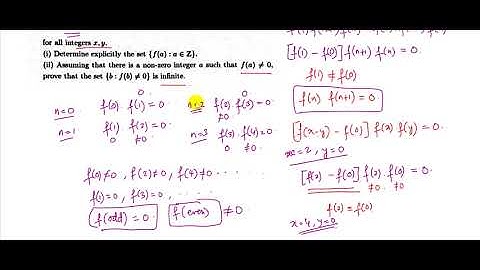 for all integers x, y.
(i) Determine explicitly the set {f(a) : a ∈ Z}.
(ii) Assuming that there is a non-zero integer a such that f(a) ≠ 0,
prove that the set {b : f(b) ≠ 0} is infinite.
n=0 f(0) f(1) = 0
n=1 f(1) f(2) = 0
0 ≠0
n=2 f(2) f(3) = 0
≠0 0
n=3 f(3) f(4) = 0
0 ≠0
f(0)≠0, f(2)≠0, f(4)≠0
f(1)=0, f(3)=0,
f(odd) = 0 f(even) ≠0
[f(1) - f(0)] f(n+1) f(n) = 0
f(1) ≠ f(0)
f(n) f(n+1) = 0
[f(x-y) - f(0)] f(x) f(y) = 0
x=2, y=0
[f(2) - f(0)] f(2) f(0) = 0
≠0 ≠0
f(2) = f(0)
x=4, y=0